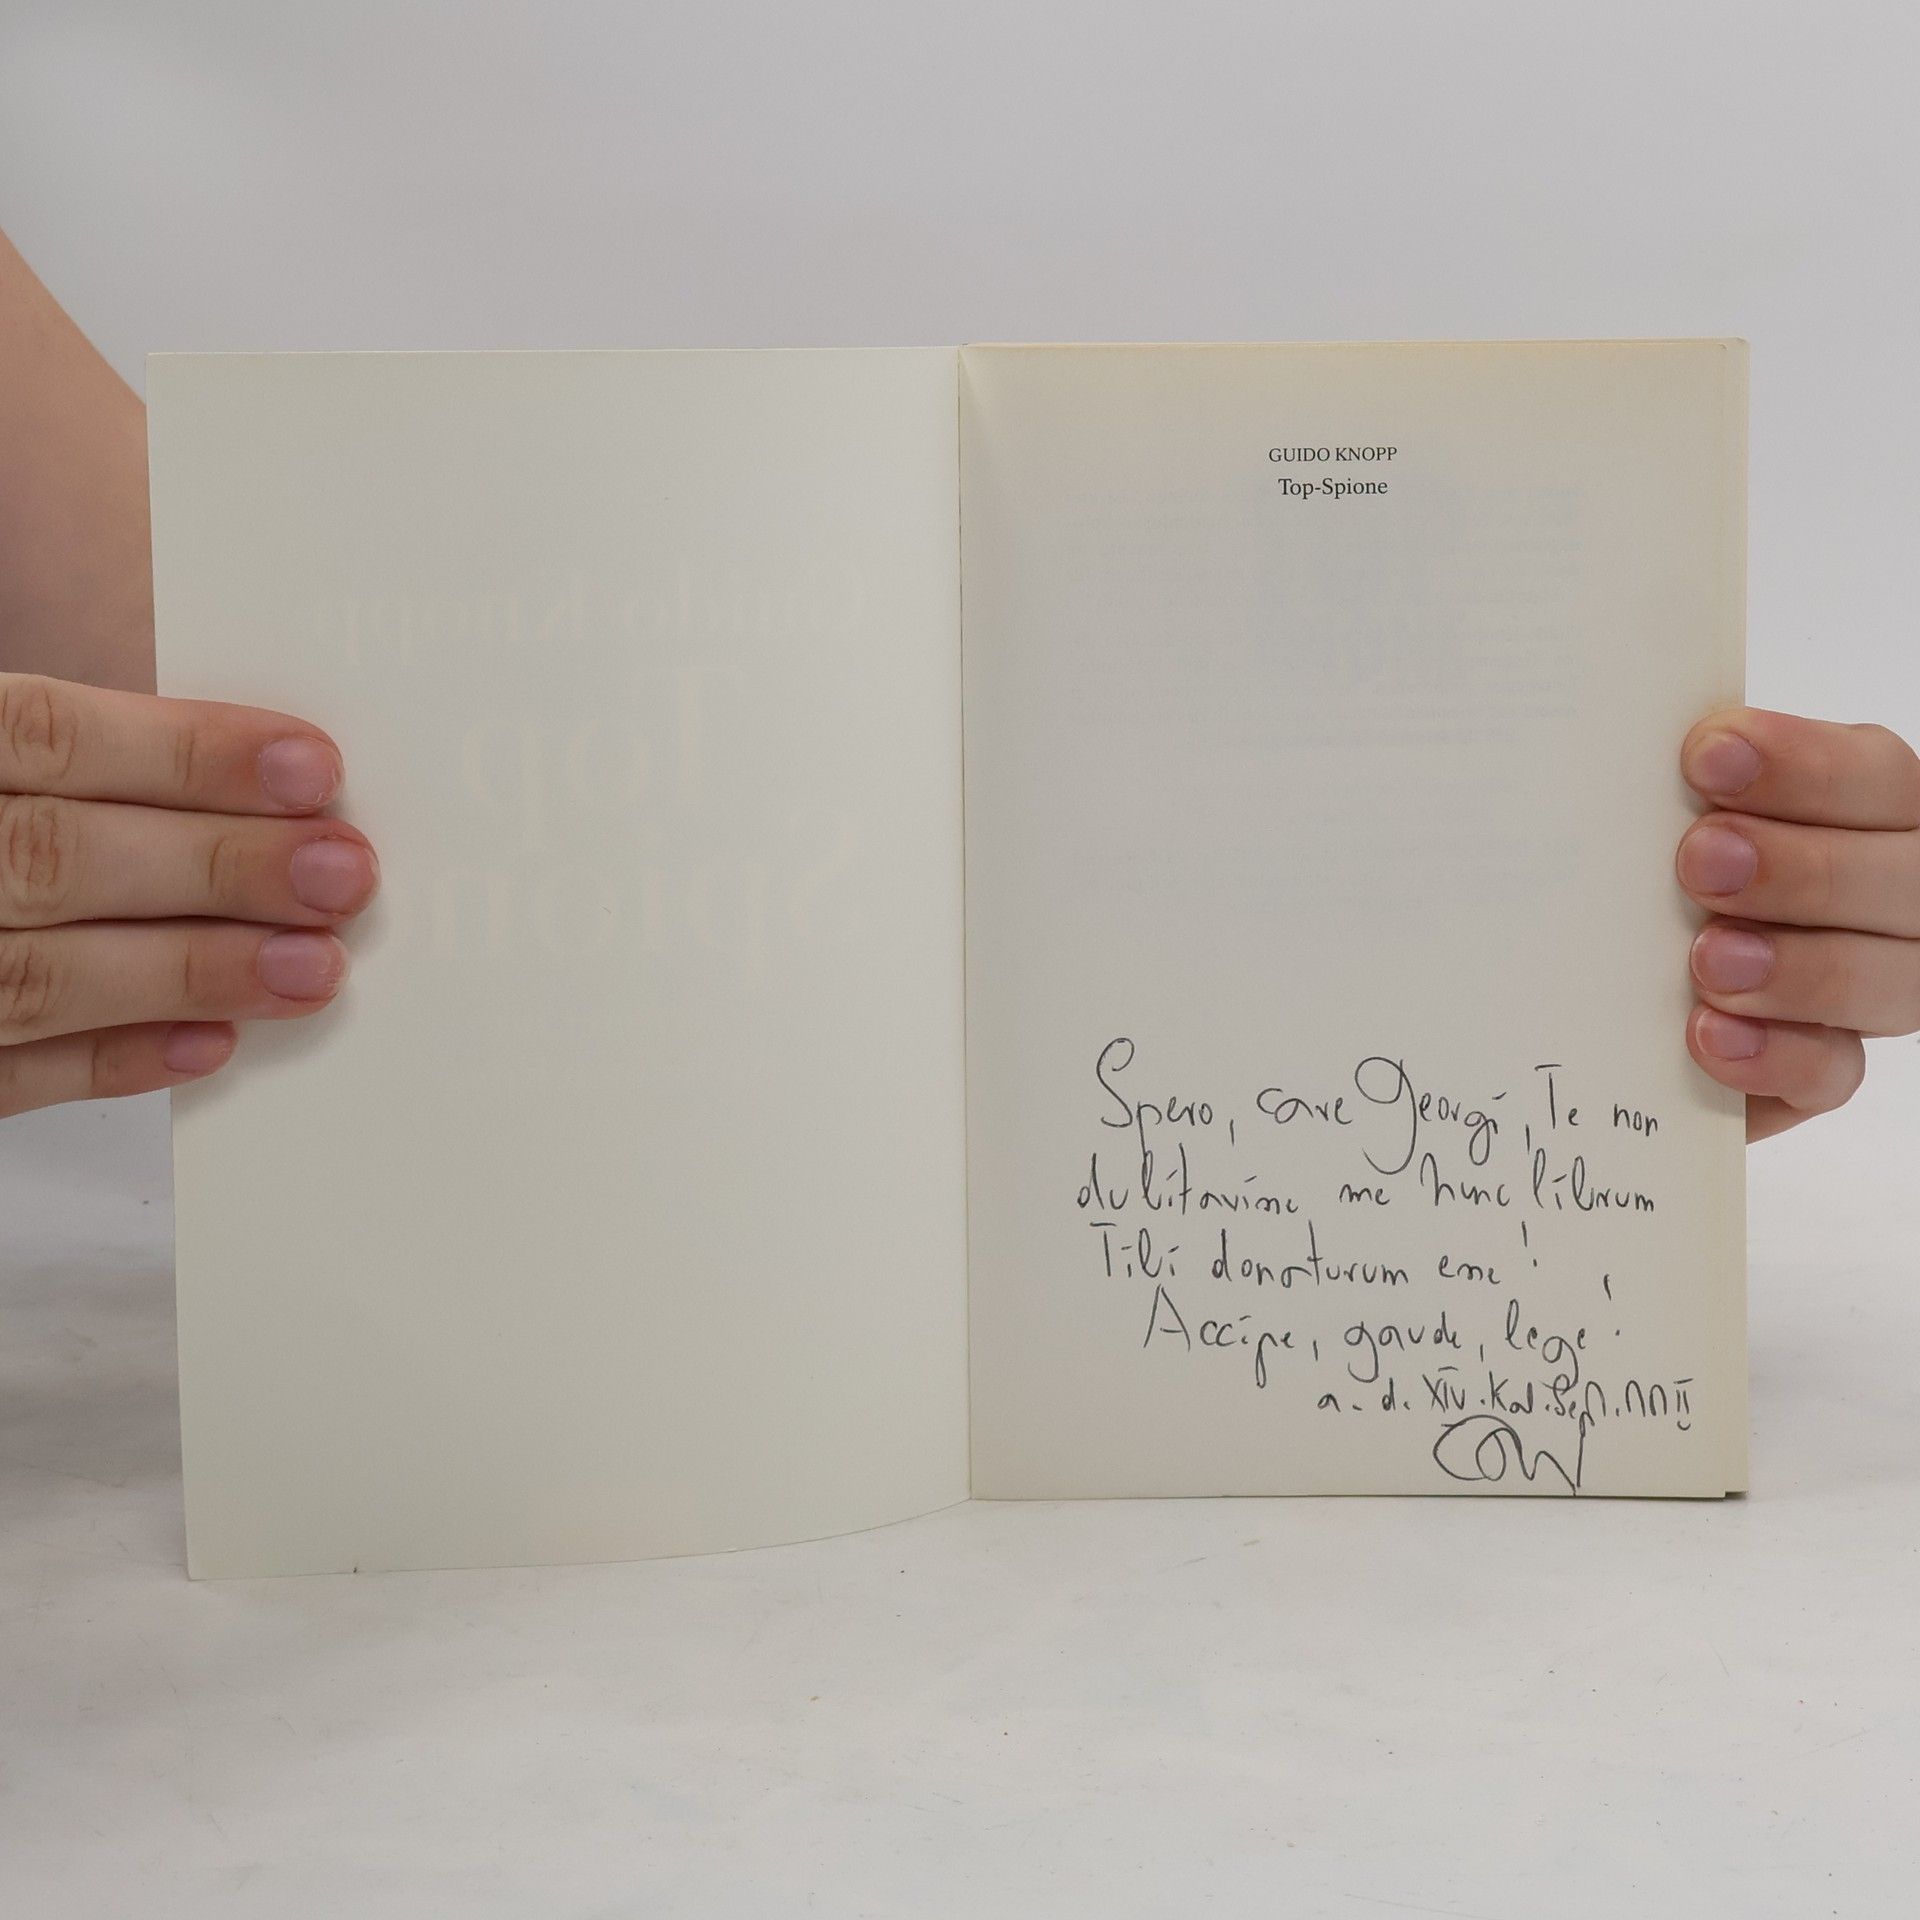 GUIDO KNOPP
Top-Spione
Spero, care Georgi, Te non
dubitavisse me hunc librum
Tibi donaturum esse!
Accipe, gaude, lege!
a. d. XIV. Kal. Sept. MMII